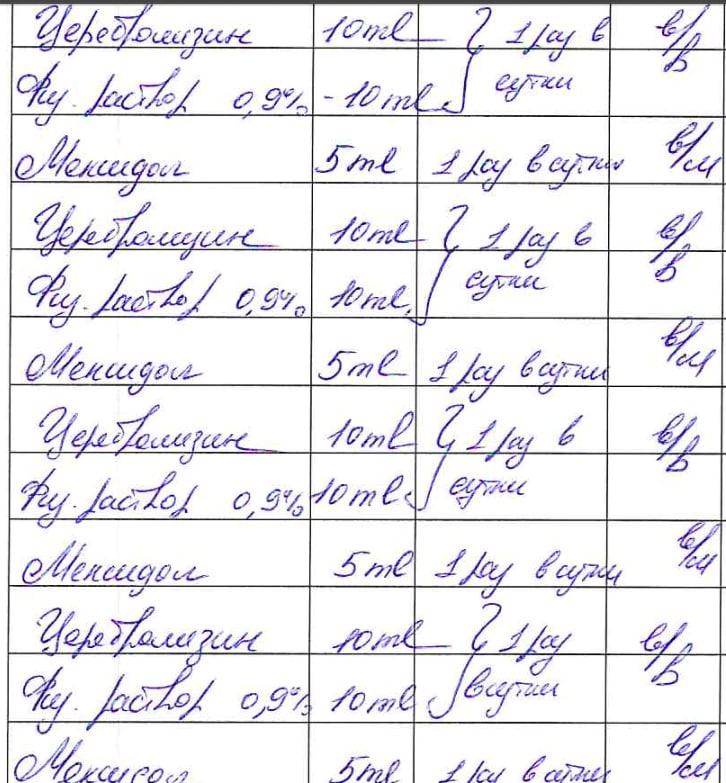 Церебролизин 10ml } 1 раз в сутки в/в
Физ. раствор 0,9% - 10ml
Мексидол 5ml 1 раз в сутки в/м
Церебролизин 10ml } 1 раз в сутки в/в
Физ. раствор 0,9% 10ml
Мексидол 5ml 1 раз в сутки в/м
Церебролизин 10ml } 1 раз в сутки в/в
Физ. раствор 0,9% 10ml
Мексидол 5ml 1 раз в сутки в/м
Церебролизин 10ml } 1 раз в сутки в/в
Физ. раствор 0,9% 10ml
Мексидол 5ml 1 раз в сутки в/м